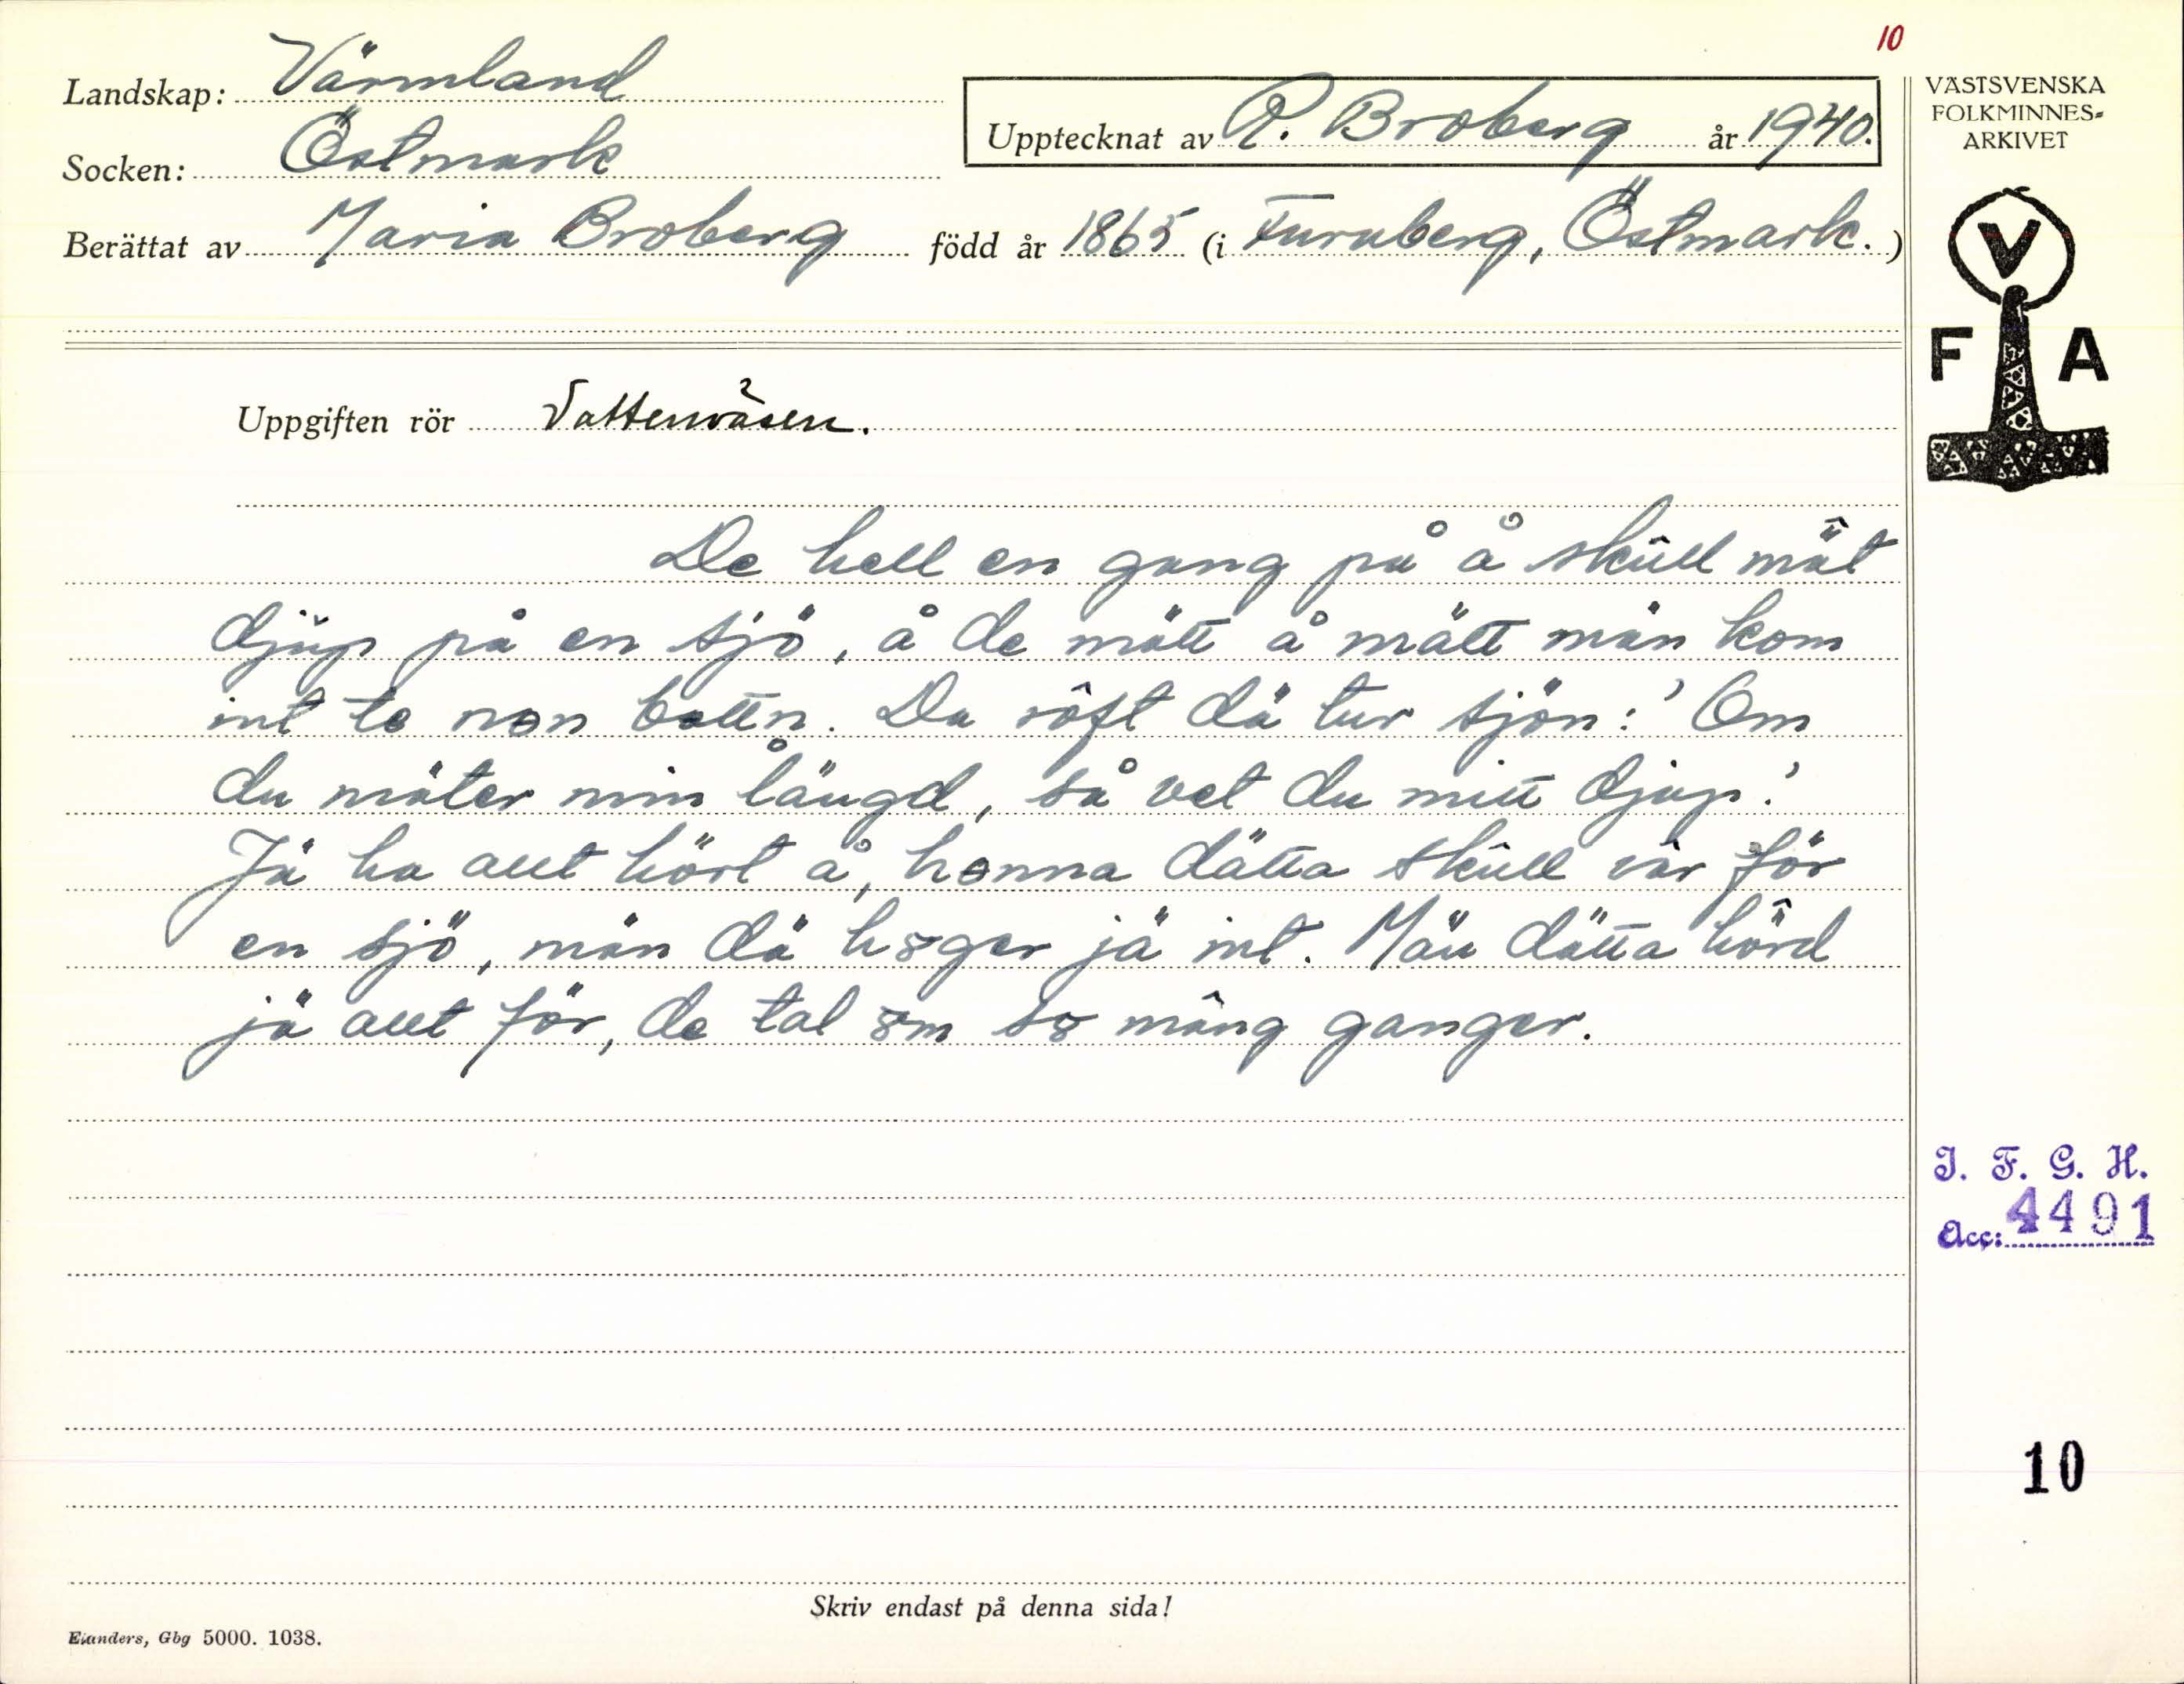 10
Landskap: Värmland
Socken: Östmark
Upptecknat av R. Broberg år 1940.
Berättat av Maria Broberg född år 1865 (i Furuberg, Östmark.)
VÄSTSVENSKA
FOLKMINNES-
ARKIVET
V
F A
Uppgiften rör Vattenväsen.
De hell en gang på å skûll mät
djup på en sjö, å de mätt å mätt män kom
int te non bottn. Da rôft dä tur sjön: 'Om
du mäter min längd, så vet du mitt djup.'
Jä ha allt hört å, hanna dätta skûll vär för
en sjö, män dä høger jä int. Män dätta hörd
jä allt för, de tal øm sø mâng ganger.
I. F. G. H.
Acc: 4491
10
Skriv endast på denna sida!
Elanders, Gbg 5000. 1038.